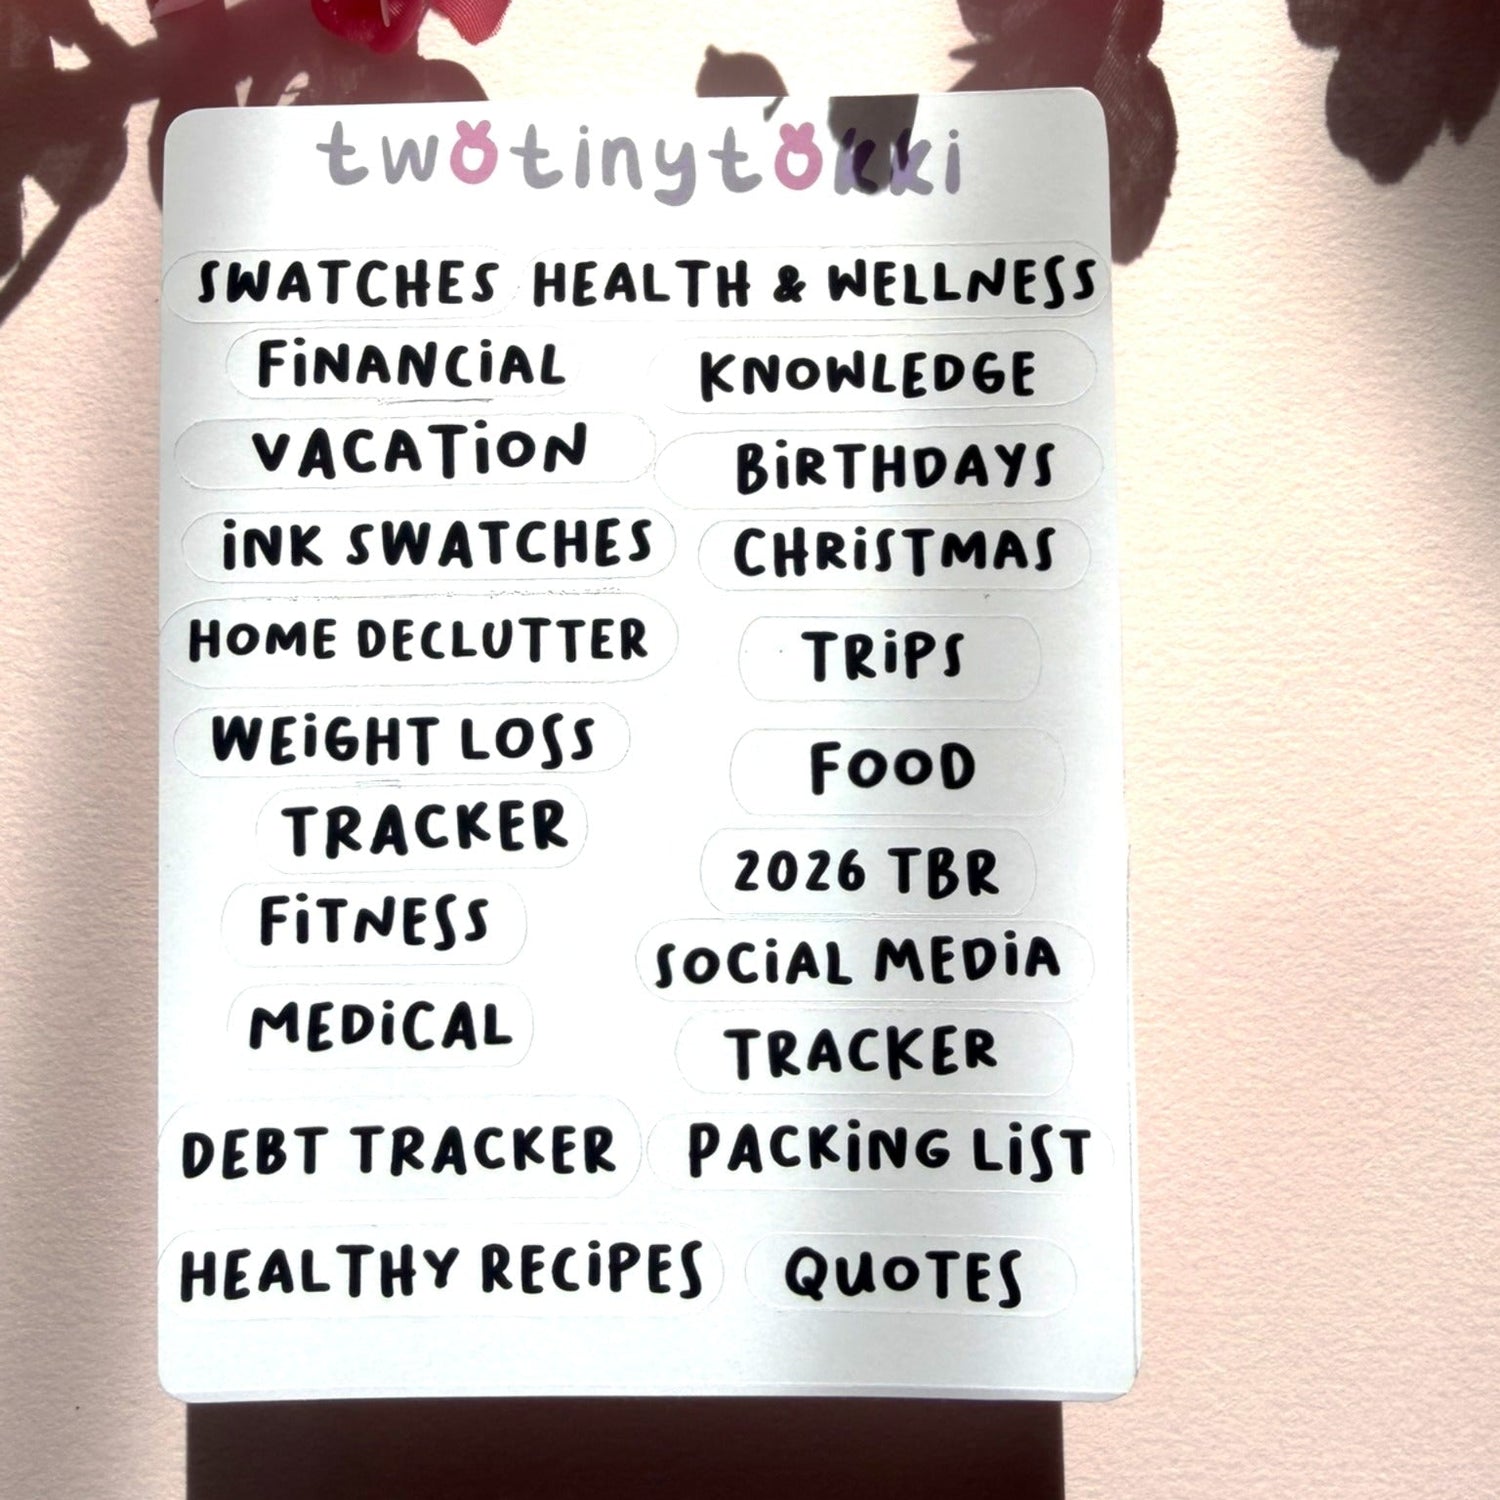 twotinytokki
SWATCHES
HEALTH & WELLNESS
FiNANCiAL
KNOWLEDGE
VACATiON
BiRTHDAYS
iNK SWATCHES
CHRiSTMAS
HOME DECLUTTER
TRiPS
WEiGHT LOSS
FOOD
TRACKER
2026 TBR
FiTNESS
SOCiAL MEDiA
MEDiCAL
TRACKER
DEBT TRACKER
PACKiNG LiST
HEALTHY RECiPES
QUOTES